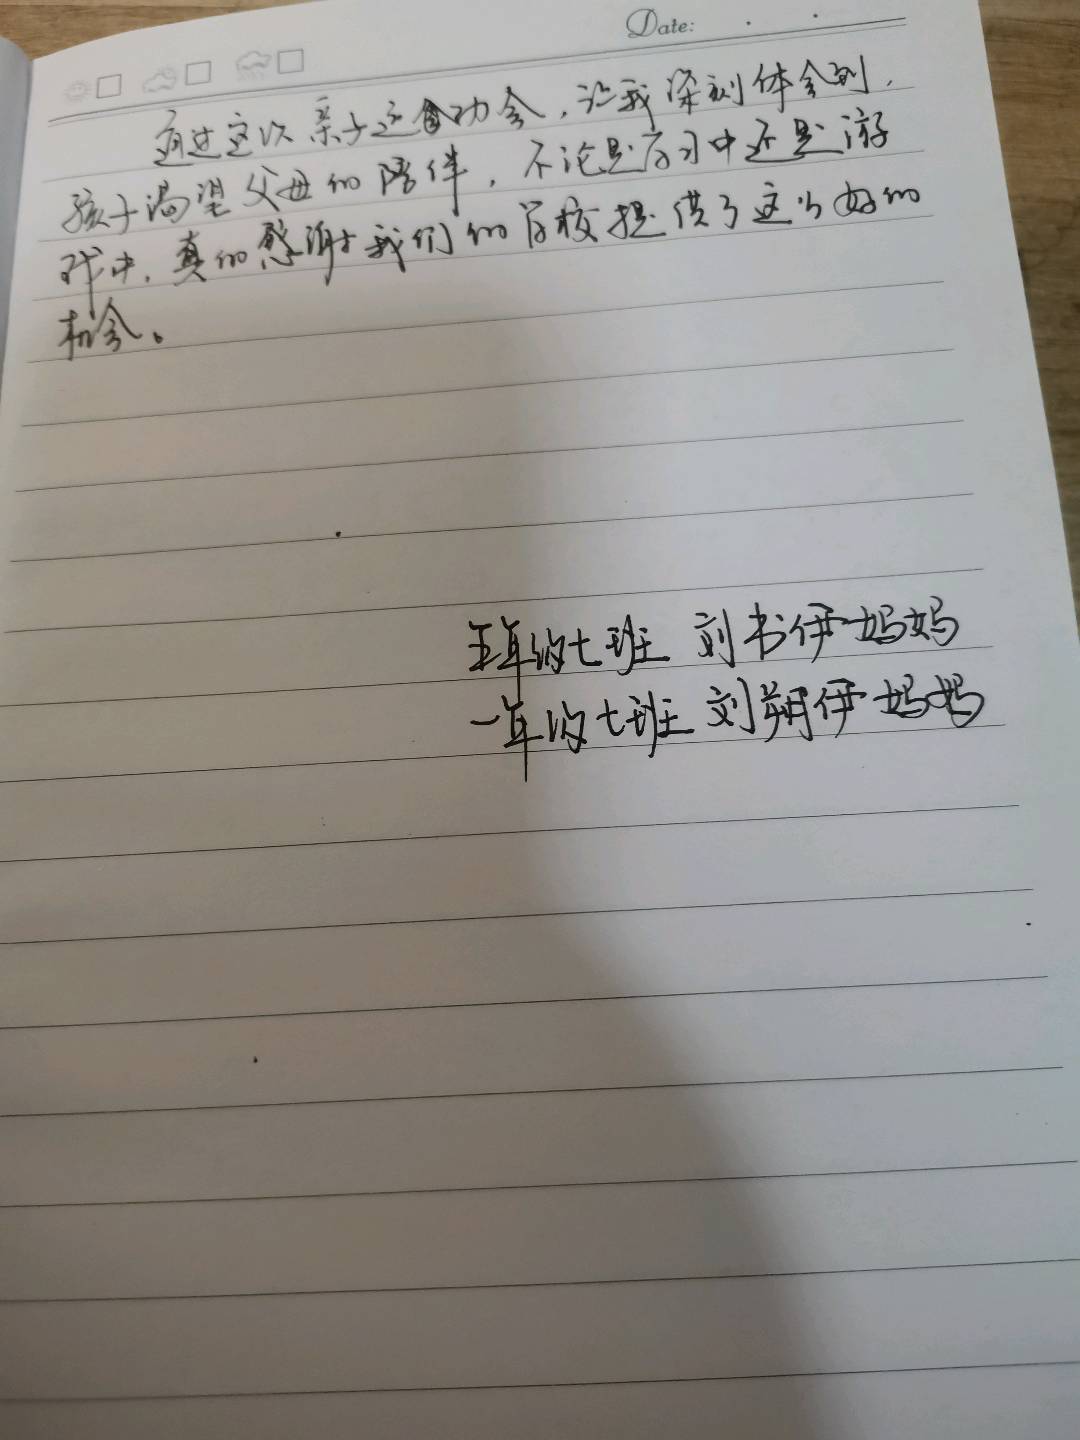 Date:
通过这次亲子运动会，让我深刻体会到，
孩子渴望父母的陪伴，不论是学习中还是游
戏中，真的感谢我们的学校提供了这么好的
机会。
五年的七班 刘书伊妈妈
一年的七班 刘朔伊妈妈